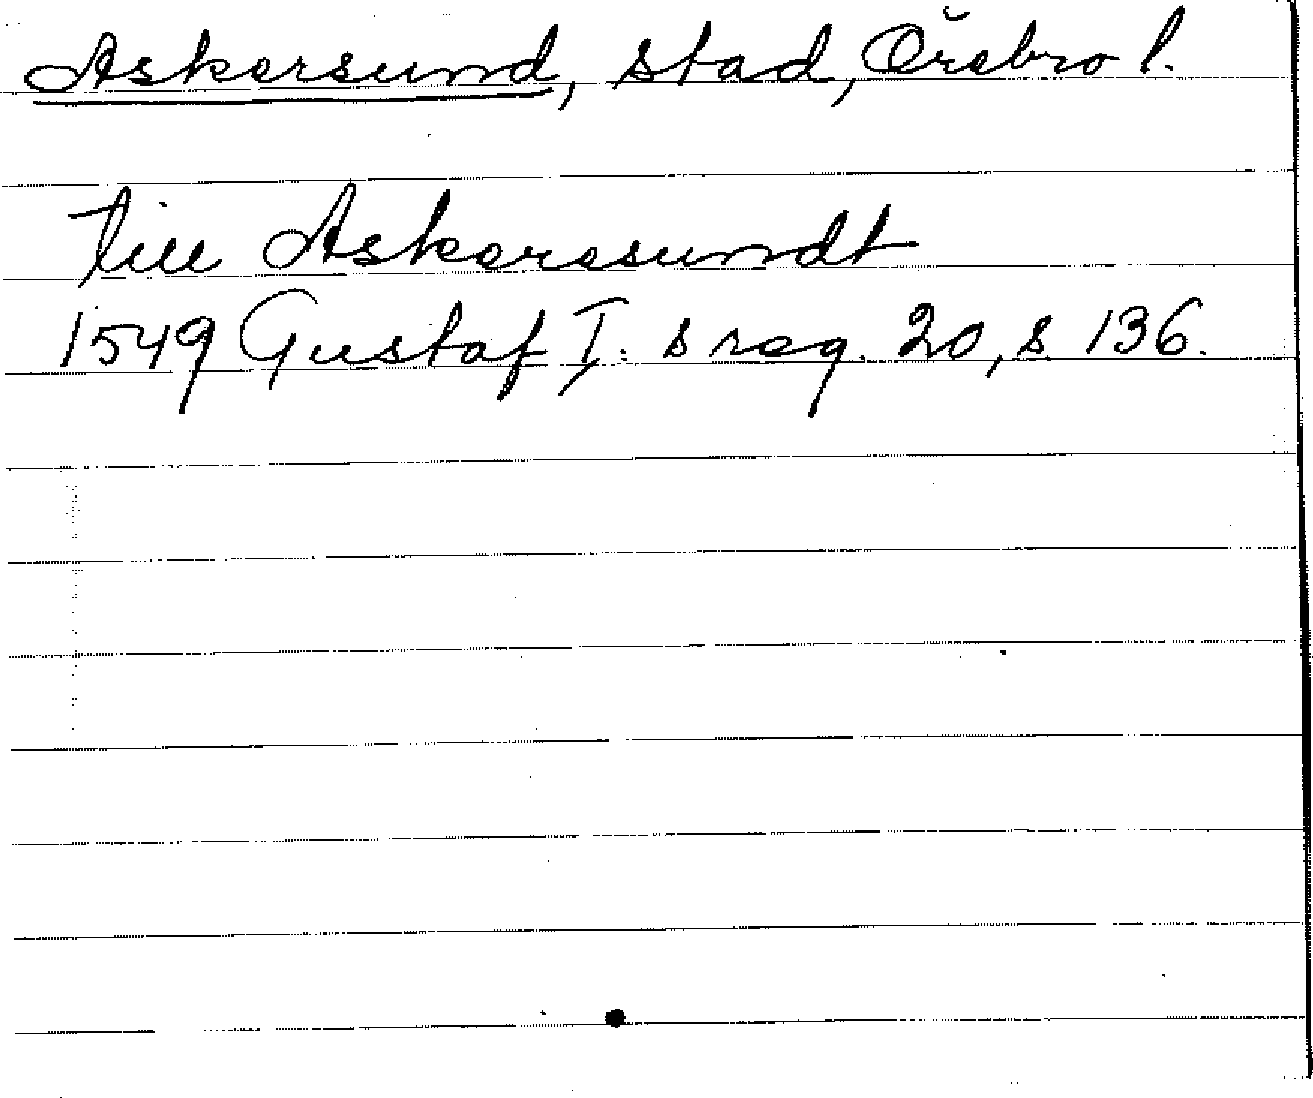 Askersund, stad, Örebro l.
till Askeresundt
1549 Gustaf I:s reg. 20, s. 136.